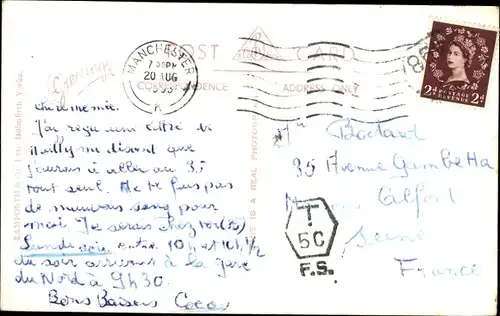 POST CARD
CORRESPONDENCE
ADDRESS ONLY
MANCHESTER
7 PM
20 AUG
POSTAGE REVENUE
2D 2D
BAMFORTH & CO. LTD. Holmfirth Yorks.
THIS IS A REAL PHOTOGRAPH
chère mémé.
J'ai reçu une lettre de
me disant que
j'aurais à aller au 35
tout seul. Ne te fais pas
de mauvais sang pour
moi. Je serai chez toi
Lundi soir entre 10h et 10h 1/2
du soir arrivant à la gare
du Nord à 9h30.
Bons Baisers Coco
35 Avenue Gambetta
Alfort
Seine
France
T
5C
F.S.